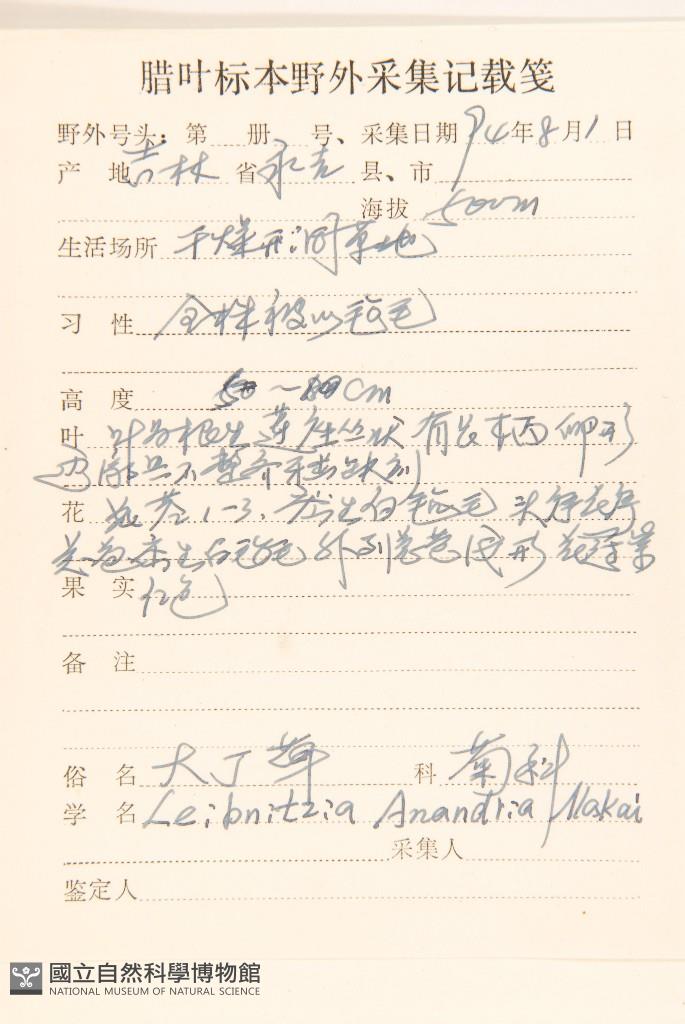 腊叶标本野外采集记载笺
野外号头：第 册 号、采集日期 94年8月1日
产 地 吉林 省 永吉 县、市
海拔 500m
生活场所 干燥 草地
习 性 全株被以 毛
高 度 cm
叶 叶为根生莲座丛状 有长柄 卵形
边 不整齐 缺刻
花 1-3. 生白 毛 头
白 毛 外列 形 花冠紫
果 实 红色
备 注
俗 名 大丁草 科 菊科
学 名 Leibnitzia Anandria Nakai
采集人
鉴定人
國立自然科學博物館
NATIONAL MUSEUM OF NATURAL SCIENCE